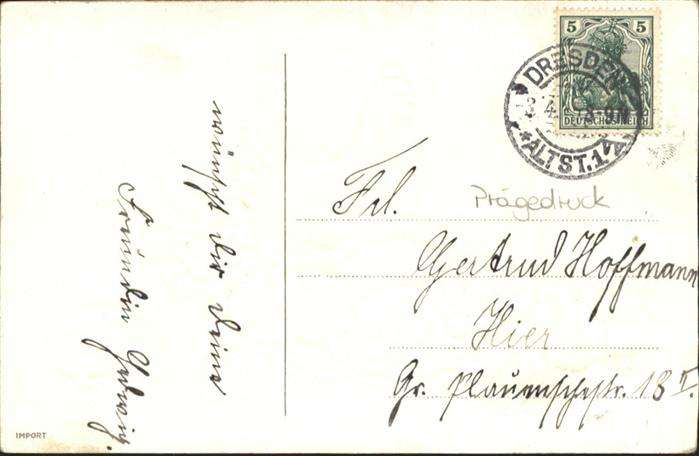 wünscht dir deine
Freundin Hedwig.
5 5
DEUTSCHES REICH
DRESDEN
*ALTST.1*
Prägedruck
Frl.
Gertrud Hoffmann
Hier
Gr. Plauenschestr. 18 II.
IMPORT